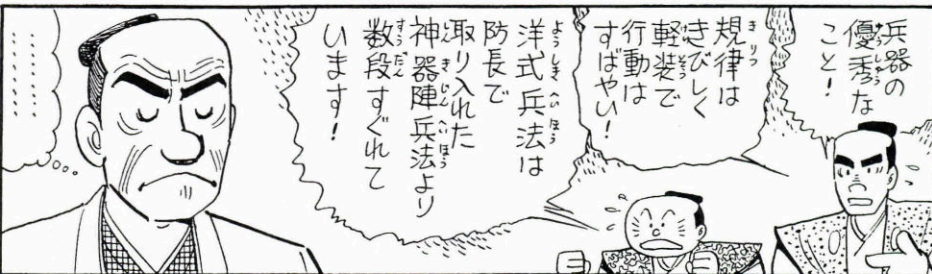 兵器の
優秀な
こと!
規律は
きびしく
軽装で
行動は
すばやい!
洋式兵法は
防長で
取り入れた
神器陣兵法より
数段すぐれて
います!
…………
…………